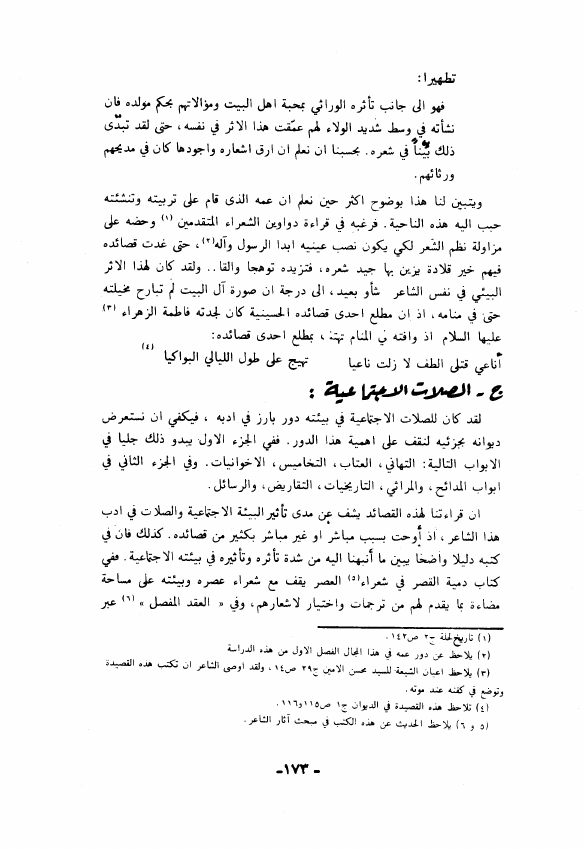 تطهيرا:
فهو الى جانب تأثره الوراثي بمحبة اهل البيت ومؤالاتهم بحكم مولده فان
نشأته في وسط شديد الولاء لهم عمّقت هذا الاثر في نفسه، حتى لقد تبدّى
ذلك بيّناً في شعره. بحسبنا ان نعلم ان ارق اشعاره واجودها كان في مديحهم
ورثائهم.
ويتبين لنا هذا بوضوح اكثر حين نعلم ان عمه الذى قام على تربيته وتنشئته
حبب اليه هذه الناحية. فرغبه في قراءة دواوين الشعراء المتقدمين (١) وحضه على
مزاولة نظم الشعر لكي يكون نصب عينيه ابدا الرسول وآله(٢)، حتى غدت قصائده
فيهم خير قلادة يزين بها جيد شعره، فتزيده توهجا والقا.. ولقد كان لهذا الاثر
البيئي في نفس الشاعر شأو بعيد، الى درجة ان صورة آل البيت لم تبارح مخيلته
حتى في منامه، اذ ان مطلع احدى قصائده الحسينية كان لجدته فاطمة الزهراء (٣)
عليها السلام اذ وافته في المنام تهتف بمطلع احدى قصائده:
أناعي قتلى الطف لا زلت ناعيا تهيج على طول الليالي البواكيا (٤)
ج - الصلات الاجتماعية :
لقد كان للصلات الاجتماعية في بيئته دور بارز في ادبه ، فيكفي ان نستعرض
ديوانه بجزئيه لنقف على اهمية هذا الدور. ففي الجزء الاول يبدو ذلك جليا في
الابواب التالية: التهاني، العتاب، التخاميس، الاخوانيات. وفي الجزء الثاني في
ابواب المدائح، والمراثي، التاريخيات، التقاريض، والرسائل.
ان قراءتنا لهذه القصائد يشف عن مدى تأثير البيئة الاجتماعية والصلات في ادب
هذا الشاعر، اذ أوحت بسبب مباشر او غير مباشر بكثير من قصائده. كذلك فان في
كتبه دليلا واضحا يبين ما أنبهنا اليه من شدة تأثره وتأثيره في بيئته الاجتماعية. ففي
كتاب دمية القصر في شعراء(٥) العصر يقف مع شعراء عصره وبيئته على مساحة
مضاءة بما يقدم لهم من ترجمات واختيار لاشعارهم، وفي « العقد المفصل » (٦) عبر
(١) تاريخ لحلة ج٢ ص١٤٢.
(٢) يلاحظ عن دور عمه في هذا المجال الفصل الاول من هذه الدراسة
(٣) يلاحظ اعيان الشيعة للسيد محسن الامين ج٢٩ ص١٤، ولقد اوصى الشاعر ان تكتب هذه القصيدة
وتوضع في كفنه عند موته.
(٤) تلاحظ هذه القصيدة في الديوان ج١ ص١١٥و١١٦.
(٥ و ٦) يلاحظ الحديث عن هذه الكتب في مبحث آثار الشاعر.
-١٧٣-